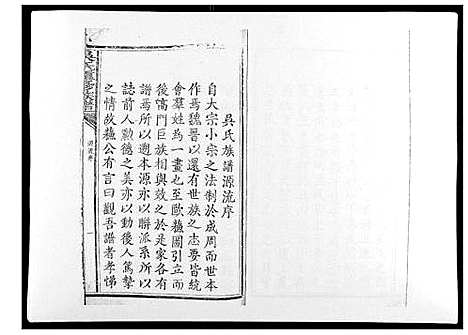 吳氏族譜源流序
自大宗小宗之法制於成周而世本
作焉魏晉以還有世族之志要皆統
會羣姓為一書也至歐蘇圖引立而
後高門巨族相與效之於是家各有
譜焉所以遡本源亦以聯派系所以
誌前人勳德之美亦以動後人篤摯
之情故蘇公有言曰觀吾譜者孝悌
源流序
一